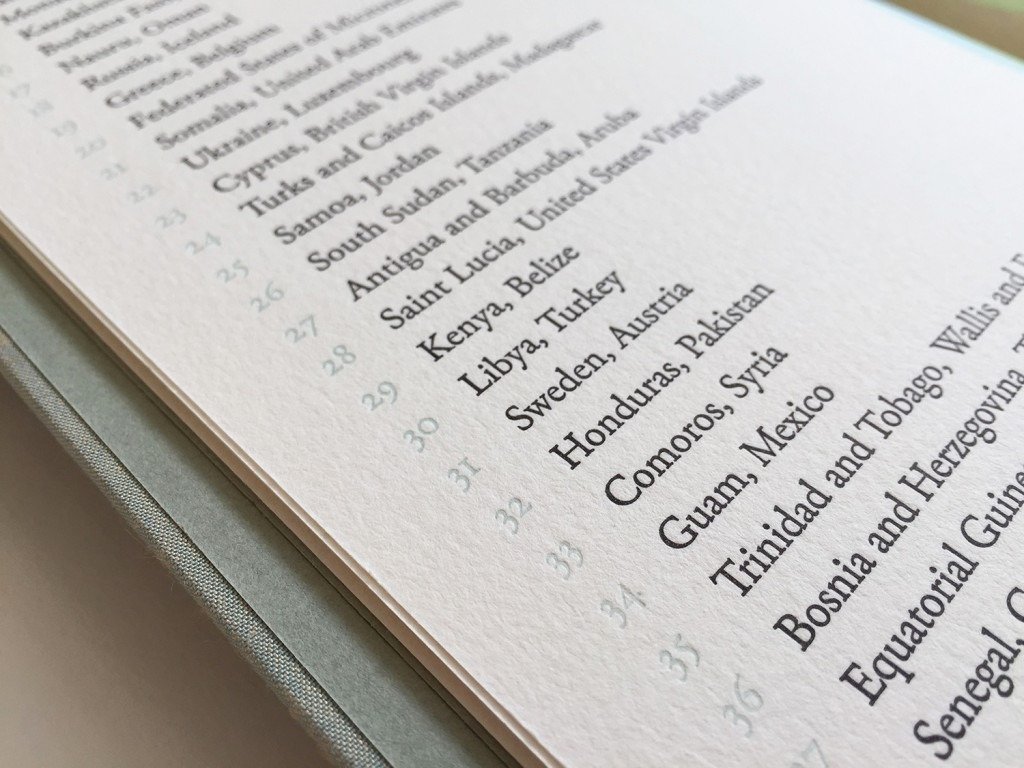 Kazakhstan
Burkina Faso
17 Nauru, Oman
18 Russia, Iceland
19 Greece, Belgium
20 Federated States of
21 Somalia, United Arab Emirates
22 Ukraine, Luxembourg
23 Cyprus, British Virgin Islands
24 Turks and Caicos Islands, Madagascar
25 Samoa, Jordan
26 South Sudan, Tanzania
27 Antigua and Barbuda, Aruba
28 Saint Lucia, United States Virgin Islands
29 Kenya, Belize
30 Libya, Turkey
31 Sweden, Austria
32 Honduras, Pakistan
33 Comoros, Syria
34 Guam, Mexico
35 Trinidad and Tobago, Wallis and
36 Bosnia and Herzegovina,
37 Equatorial
Senegal,